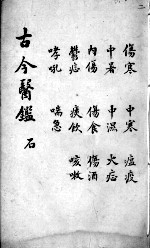 傷寒 中寒 瘟疫
中暑 中濕 火症
內傷 傷食 傷酒
鬱症 痰飲 咳嗽
哮吼 喘急
古今醫鑑 石